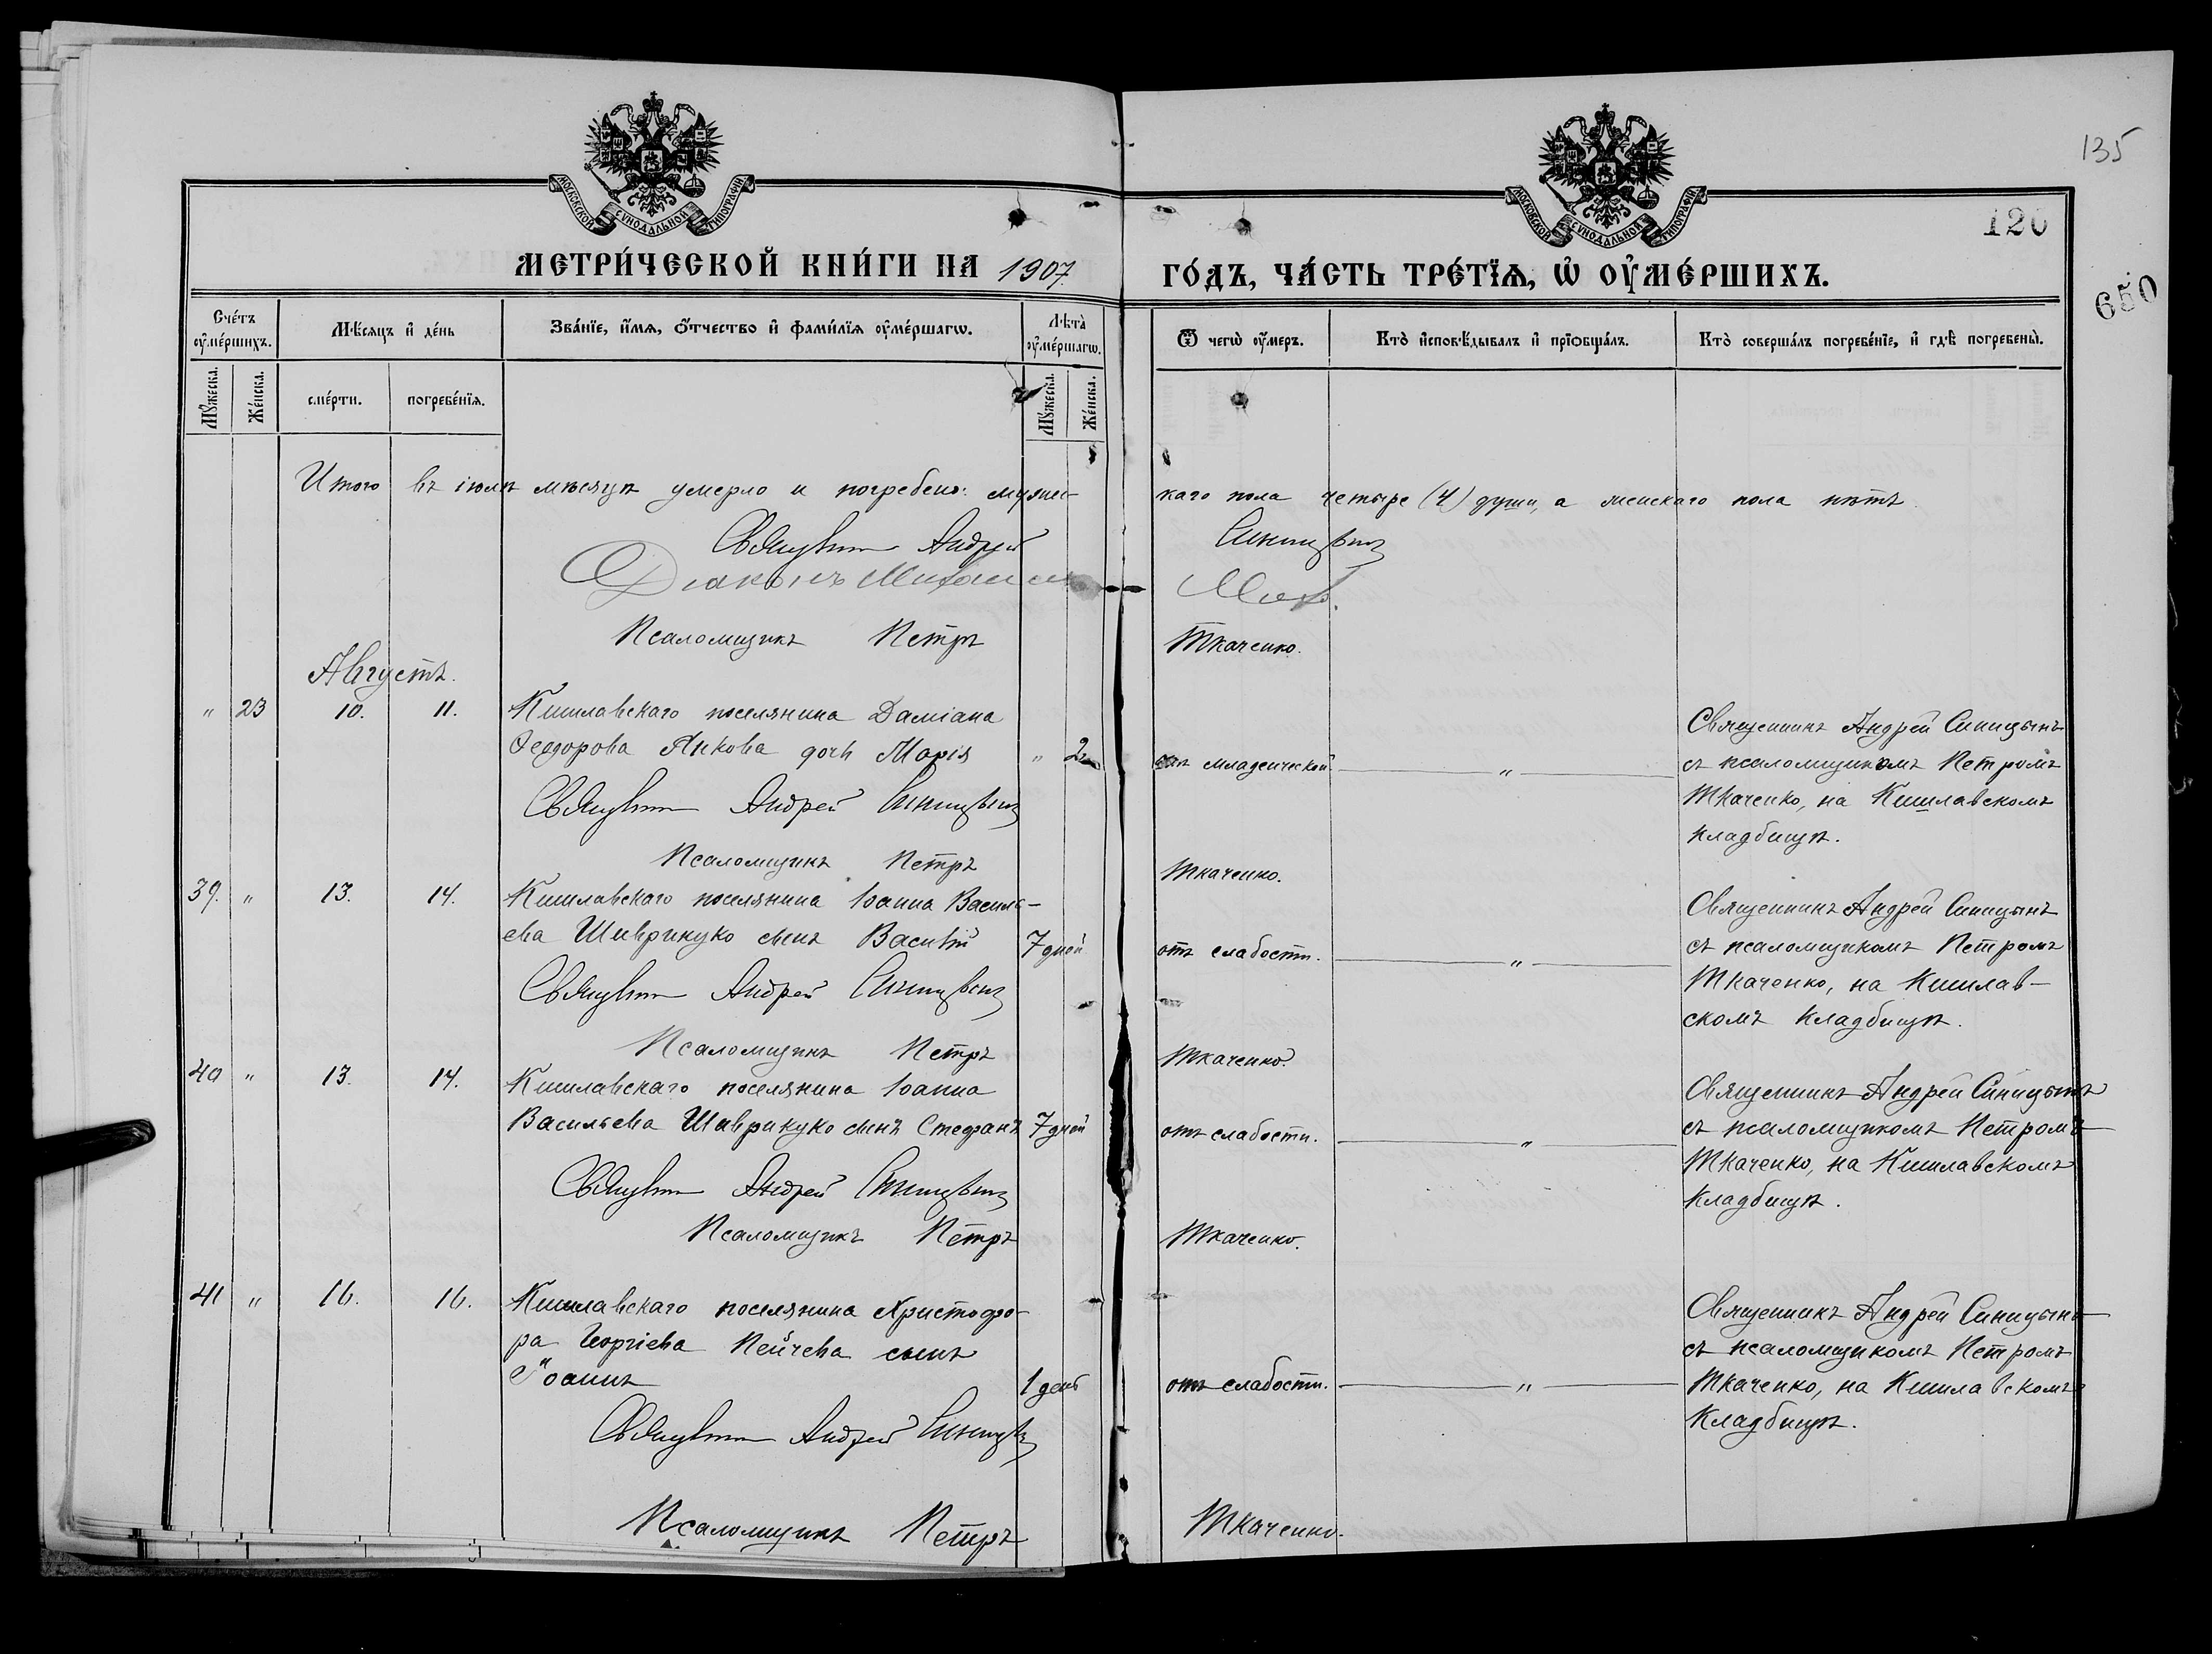 135
МОСКОВСКОЙ СУНОДАЛЬНОЙ ТИПОГРАФІИ
МОСКОВСКОЙ СУНОДАЛЬНОЙ ТИПОГРАФІИ
120
650
МЕТРИ́ЧЕСКОЙ КНИ́ГИ НА 1907 ГО́ДЪ, ЧА́СТЬ ТРЕ́ТЇѦ, Ѡ҆ ОУ҆МЕ́РШИХЪ.
Сче́тъ оу҆ме́ршихъ.
Мѣ́сяцъ и҆ де́нь
Зва́нїе, и҆́мѧ, ѻ҆́тчество и҆ фами́лїѧ оу҆ме́ршагѡ.
Лѣ́та оу҆ме́ршагѡ.
Ѿ чегѡ̀ оу҆́меръ.
Кто̀ и҆сповѣ́дывалъ и҆ прїобща́лъ.
Кто̀ соверша́лъ погребе́нїе, и҆ гдѣ̀ погребены̀.
Мꙋ́жеска. Же́нска. сме́рти. погребе́нїѧ. Мꙋ́жеска. Же́нска.
Итого въ іюлѣ мѣсяцѣ умерло и погребено: мужес-каго пола четыре (4) души, а женскаго пола нѣтъ.
Священникъ Андрей Синицынъ
Діаконъ Михаилъ
Псаломщикъ Петръ Ткаченко.
Августъ.
" 23 10. 11. Кишлавскаго поселянина Даміана
Ѳеодорова Янкова дочь Марія " 2 младенческой "
Священникъ Андрей Синицынъ
съ псаломщикомъ Петромъ
Ткаченко, на Кишлавскомъ
кладбищѣ.
Священникъ Андрей Синицынъ
Псаломщикъ Петръ Ткаченко.
39. " 13. 14. Кишлавскаго поселянина Іоанна Василь-
ева Шаврикуко сынъ Василій 7 дней отъ слабости. "
Священникъ Андрей Синицынъ
съ псаломщикомъ Петромъ
Ткаченко, на Кишлав-
скомъ кладбищѣ.
Священникъ Андрей Синицынъ
Псаломщикъ Петръ Ткаченко.
40 " 13. 14. Кишлавскаго поселянина Іоанна
Васильева Шаврикуко сынъ Стефанъ 7 дней отъ слабости. "
Священникъ Андрей Синицынъ
съ псаломщикомъ Петромъ
Ткаченко, на Кишлавскомъ
кладбищѣ.
Священникъ Андрей Синицынъ
Псаломщикъ Петръ Ткаченко.
41 " 16. 16. Кишлавскаго поселянина Христофо-
ра Георгіева Пейчева сынъ
Іоаннъ 1 день отъ слабости. "
Священникъ Андрей Синицынъ
съ псаломщикомъ Петромъ
Ткаченко, на Кишлавскомъ
кладбищѣ.
Священникъ Андрей Синицынъ
Псаломщикъ Петръ Ткаченко.